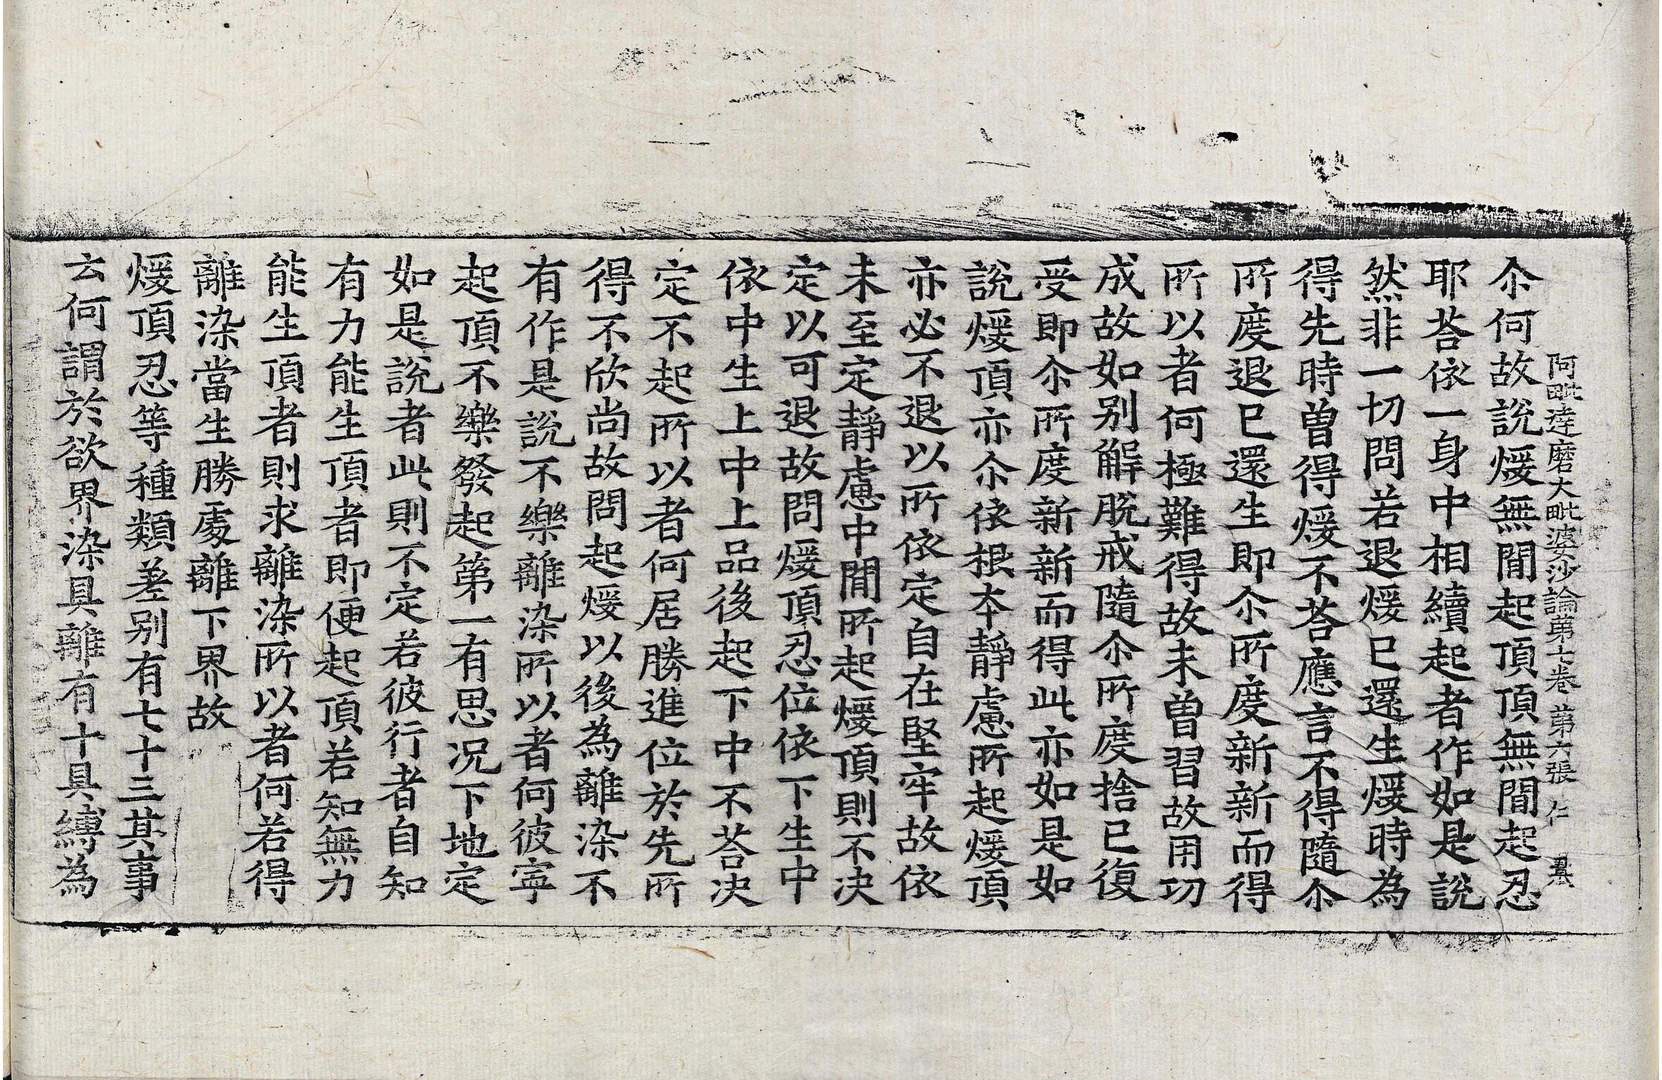 阿毗達磨大毗婆沙論第七卷 第六張 仁
尒何故說煖無閒起頂頂無閒起忍
耶荅依一身中相續起者作如是說
然非一切問若退煖已還生煖時為
得先時曾得煖不荅應言不得隨尒
所度退已還生即尒所度新新而得
所以者何極難得故未曾習故用功
成故如别解脫戒隨尒所度捨已復
受即尒所度新新而得此亦如是如
說煖頂亦尒依根本靜慮所起煖頂
亦必不退以所依定自在堅牢故依
未至定靜慮中閒所起煖頂則不决
定以可退故問煖頂忍位依下生中
依中生上中上品後起下中不荅决
定不起所以者何居勝進位於先所
得不欣尚故問起煖以後為離染不
有作是說不樂離染所以者何彼寧
起頂不樂發起第一有思况下地定
如是說者此則不定若彼行者自知
有力能生頂者即便起頂若知無力
能生頂者則求離染所以者何若得
離染當生勝處離下界故
煖頂忍等種類差别有七十三其事
云何謂於欲界染具離有十具縛為